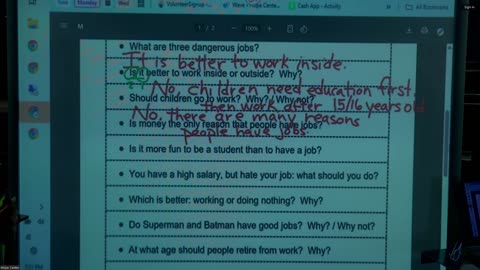 Tues
Monday
Wed
VolunteerSignup
Cash App - Activity
All Bookmarks
M
1 / 2
100%
What are three dangerous jobs?
It is better to work inside.
Is it better to work inside or outside? Why?
No, children need education first,
Should children go to work? Why? / Why not?
then work after 15/16 years old
No, there are many reasons
Is money the only reason that people have jobs?
people have jobs.
Is it more fun to be a student than to have a job?
You have a high salary, but hate your job: what should you do?
Which is better: working or doing nothing? Why?
Do Superman and Batman have good jobs? Why? / Why not?
At what age should people retire from work? Why?